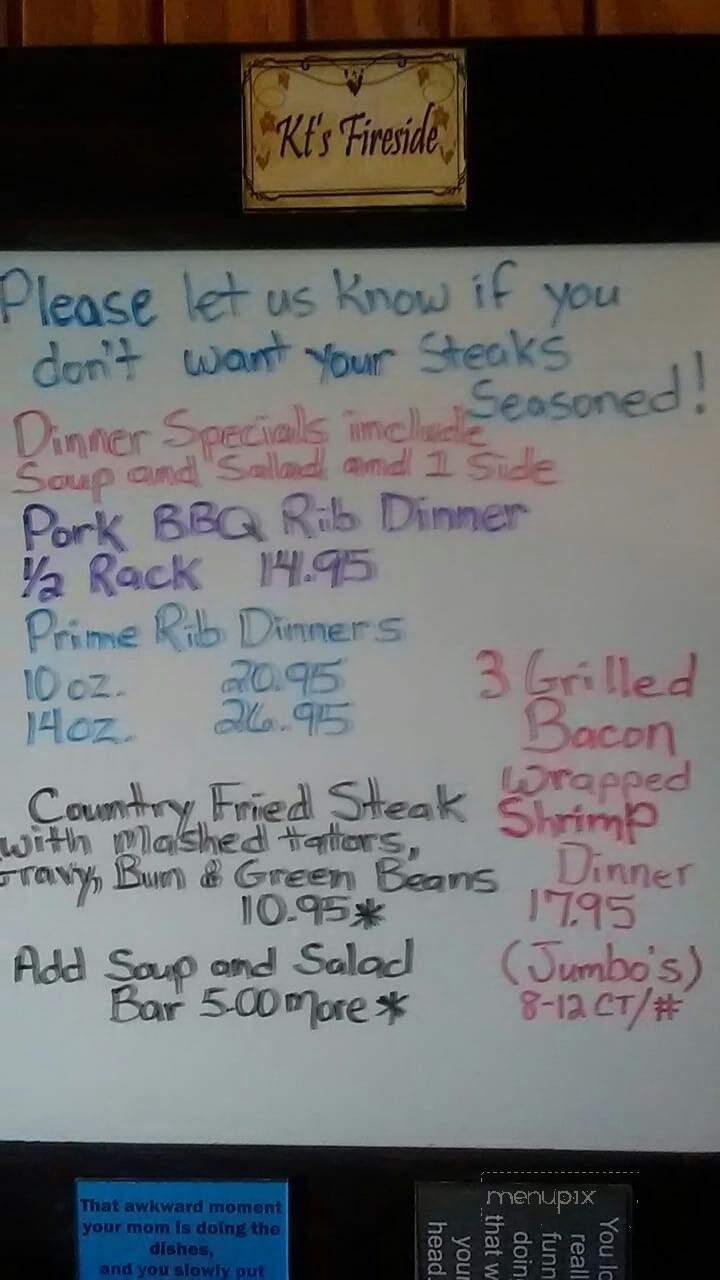 Kt's Fireside
Please let us know if you
don't want your steaks
Seasoned!
Dinner Specials include
Soup and Salad and 1 Side
Pork BBQ Rib Dinner
1/2 Rack 14.95
Prime Rib Dinners
10 oz. 20.95
14 oz. 26.95
3 Grilled
Bacon
Wrapped
Shrimp
Dinner
17.95
(Jumbo's)
8-12 CT/#
Country Fried Steak
with Mashed tattors,
Gravy, Bun & Green Beans
10.95*
Add Soup and Salad
Bar 5.00 more *
That awkward moment
your mom is doing the
dishes,
and you slowly put
menupix
You lo
reall
funn
doin
that w
your
head.